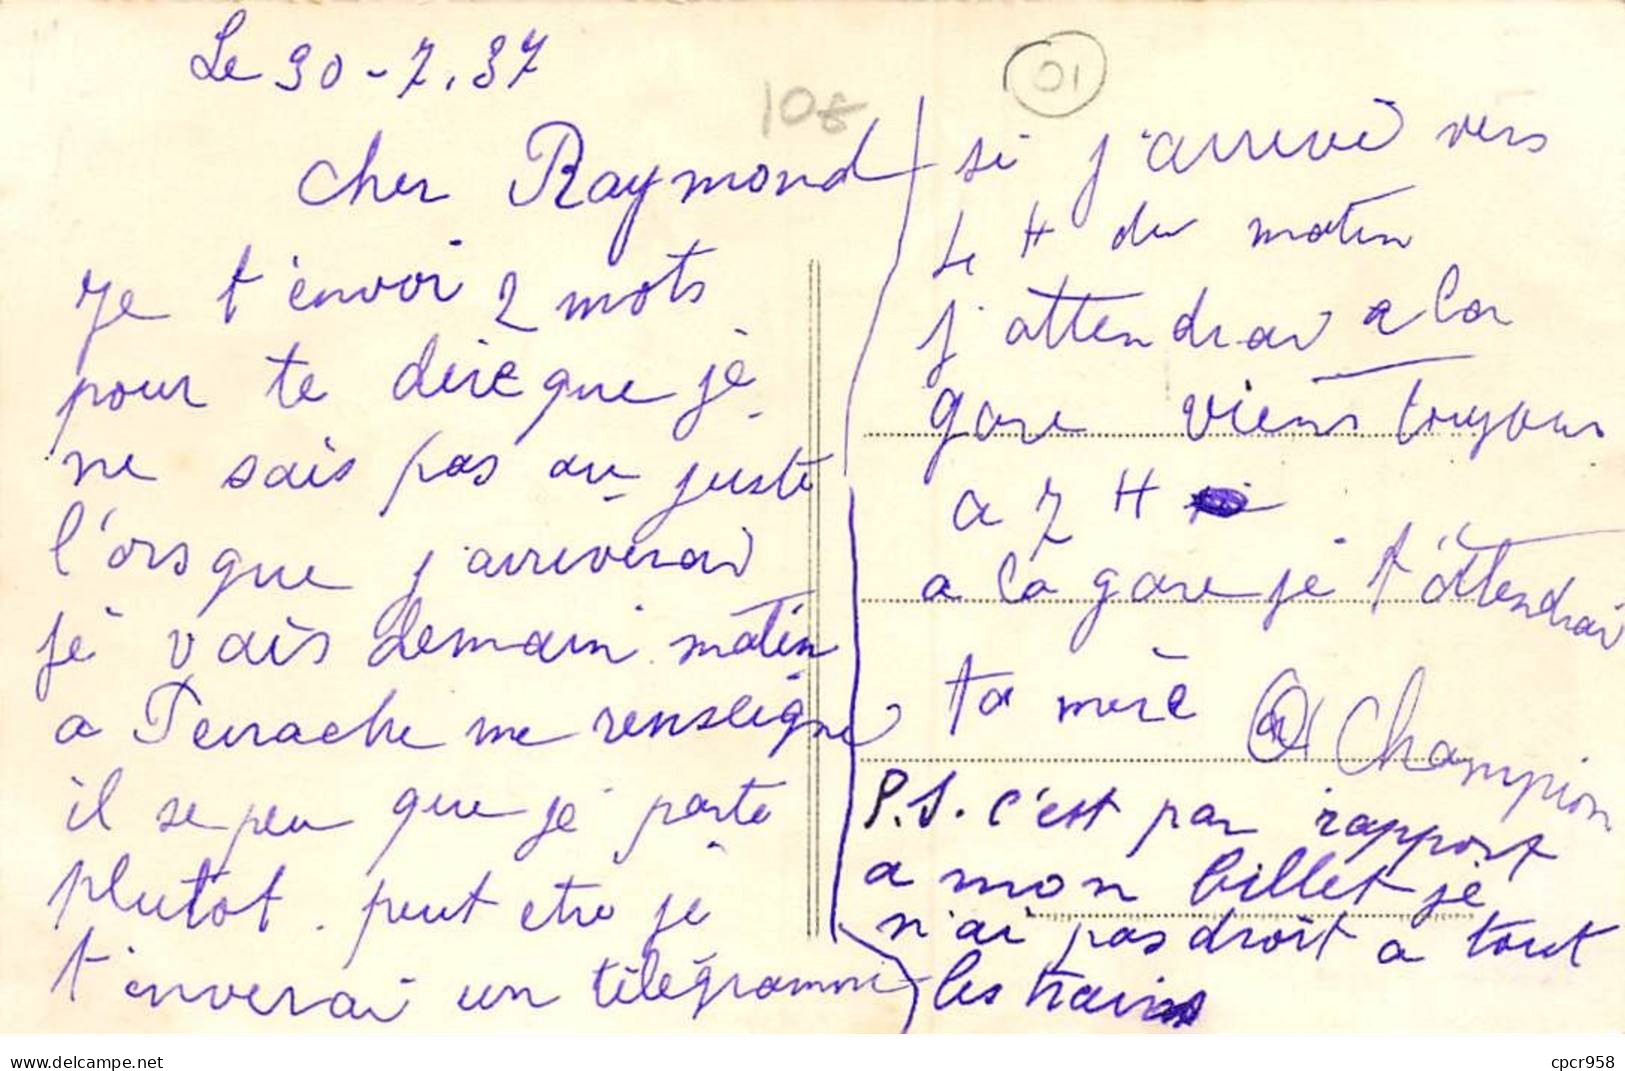 Le 30-7.37
10f
01
cher Raymond
je t'envoi 2 mots
pour te dire que je
ne sais pas au juste
l'orsque j'arriverai
je vais demain matin
a Perrache me renseigné
il se peu que je parte
plutot. peut etre je
t'inverai un télégramme
si j'arrive vers
4 H du matin
j'attendrai a la
gare viens toujours
a 7 H
a la gare je t'attendrai
ta mère
Champion
P.S. c'est par rapport
a mon billet je
n'ai pas droit a tout
les trains
https://www.delcampe.net
cpcr958